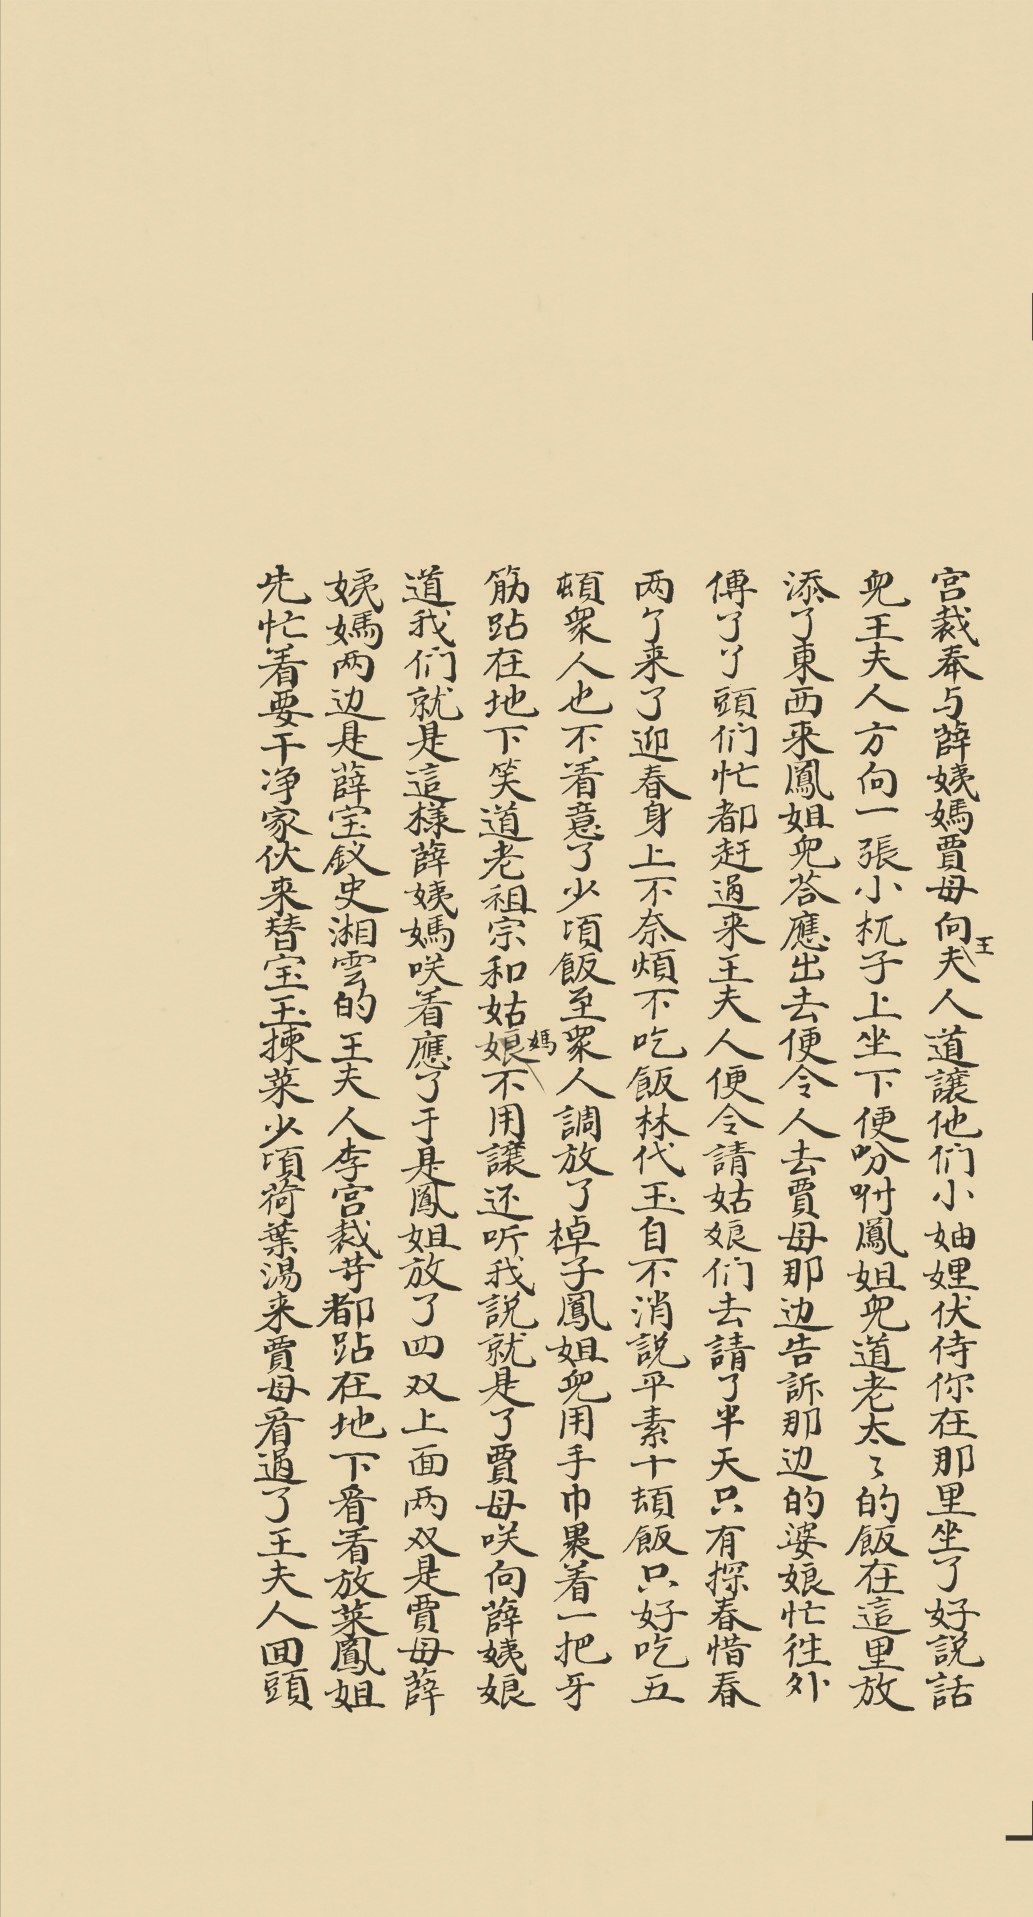 宫裁奉与薛姨媽賈母向王夫人道讓他们小妯娌伏侍你在那里坐了好説話
兜王夫人方向一張小杌子上坐下便吩咐鳳姐兜道老太〻的飯在這里放
添了東西来鳳姐兜荅應出去便令人去賈母那边告訴那边的婆娘忙徃外
傳了丫頭们忙都赶過来王夫人便令請姑娘们去請了半天只有探春惜春
两个来了迎春身上不奈煩不吃飯林代玉自不消説平素十頓飯只好吃五
頓衆人也不着意了少頃飯至衆人調放了棹子鳳姐兜用手巾裹着一把牙
筯跕在地下笑道老祖宗和姑媽不用讓还听我説就是了賈母咲向薛姨娘
道我们就是這樣薛姨媽咲着應了于是鳳姐放了四双上面两双是賈母薛
姨媽两边是薛宝釵史湘雲的王夫人李宫裁苛都跕在地下看着放菜鳳姐
先忙着要干净家伙来替宝玉揀菜少頃荷葉湯来賈母看過了王夫人囬頭